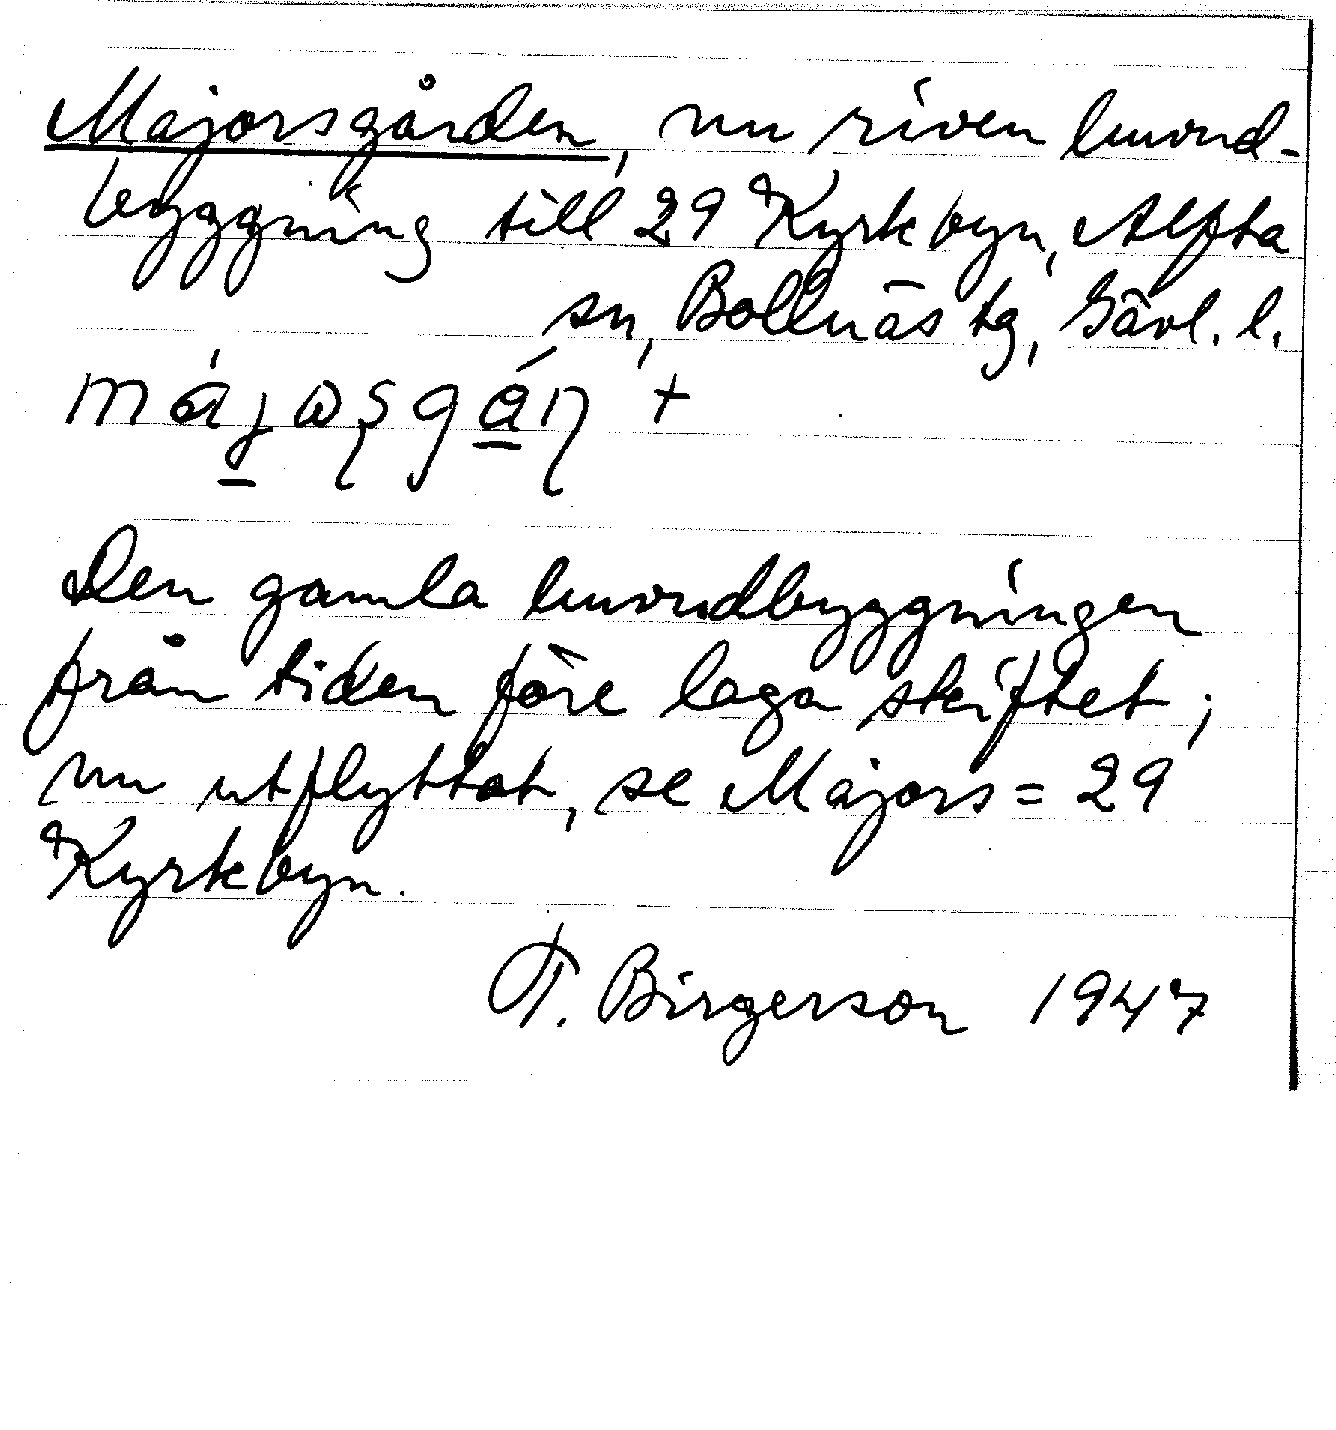 Majorsgården, nu riven huvud-
byggning till 29 Kyrkbyn, Alfta
sn, Bollnäs tg, Gävl. l.
Den gamla huvudbyggningen
från tiden före laga skiftet;
nu utflyttat, se Majors = 29
Kyrkbyn.
T. Birgerson 1947